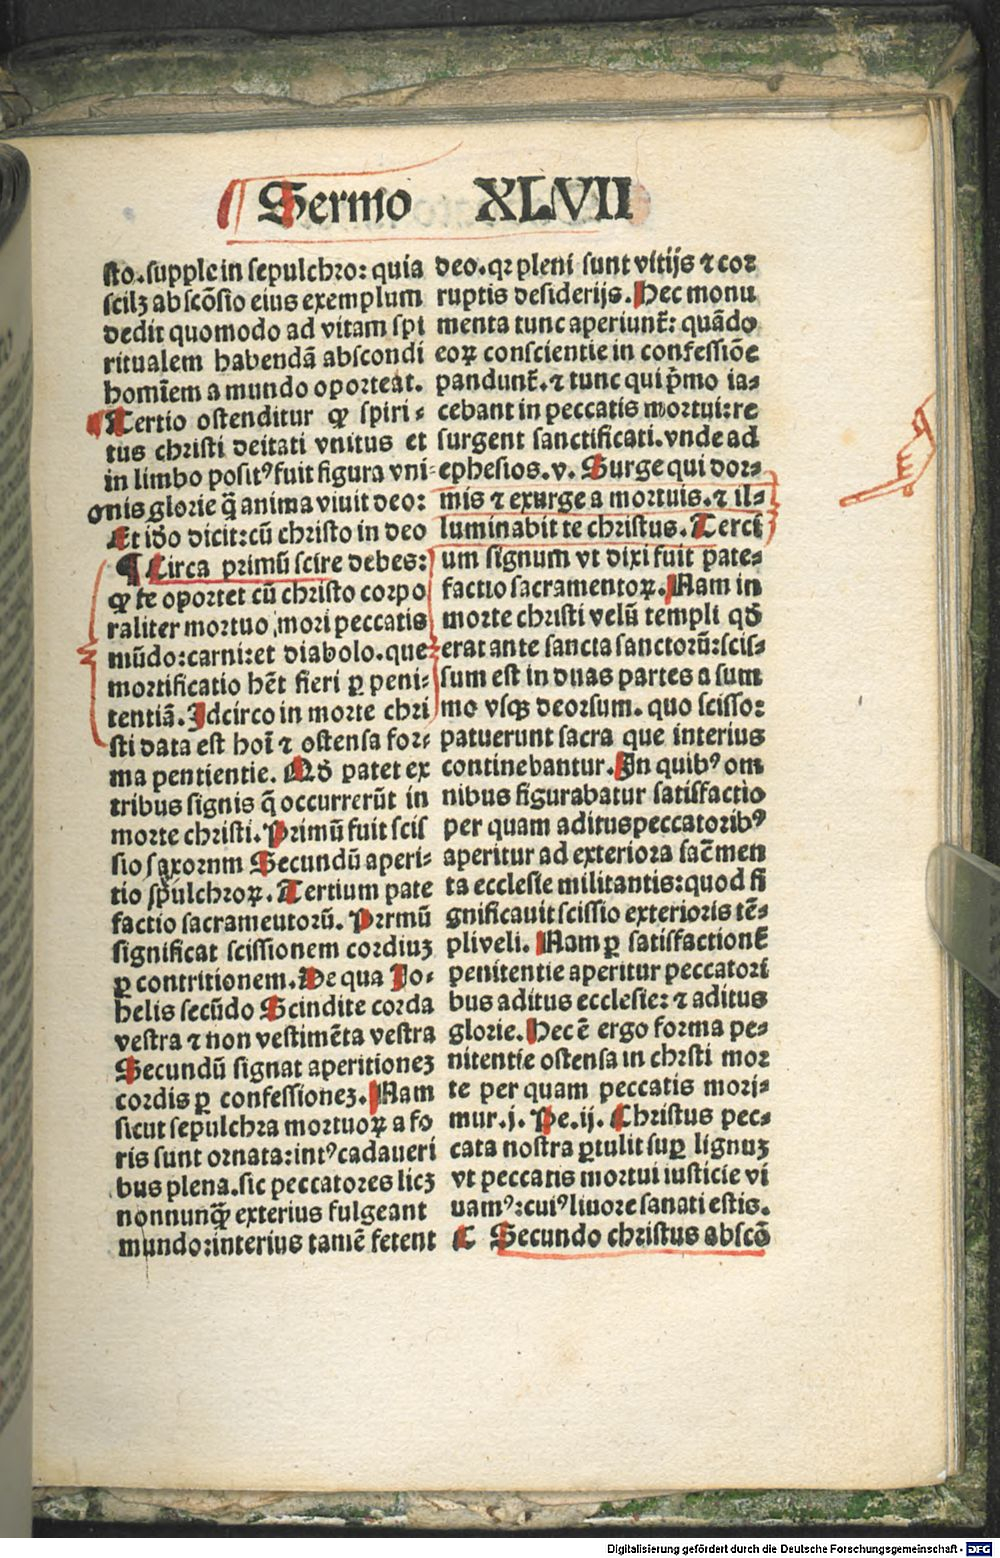 Sermo XLVII
sto.supple in sepulchro: quia
scilꝫ abscōsio eius exemplum
dedit quomodo ad vitam spi
ritualem habendā abscondi
homīem a mundo oporteat.
Tertio ostenditur ꝙ spiri⸗
tus christi deitati vnitus et
in limbo positꝰ fuit figura vni⸗
onis glorie q̄ anima viuit deo:
Et iđo dicit: cū christo in deo
¶ Circa primū scire debes:
ꝙ te oportet cū christo corpo
raliter mortuo mori peccatis
mūdo: carni: et diabolo. que
mortificatio hēt fieri ꝑ peni⸗
tentiā. Idcirco in morte chri
sti data est hoī ⁊ ostensa for⸗
ma pentientie. Qđ patet ex
tribus signis q̄ occurrerūt in
morte christi. Primū fuit scis
sio saxornm Secundū aperi⸗
tio spulchroꝝ. Tertium pate
factio sacrameutorū. Prmū
significat scissionem cordiuꝫ
ꝑ contritionem. De qua Jo⸗
helis secūdo Scindite corda
vestra ⁊ non vestimēta vestra
Secundū signat aperitioneꝫ
cordis ꝑ confessioneꝫ. Nam
sicut sepulchra mortuoꝝ a fo
ris sunt ornata: intꝰ cadaueri
bus plena. sic peccatores licꝫ
nonnunꝙ̄ exterius fulgeant
mundo: interius tamē fetent
deo. qꝛ pleni sunt vitijs ⁊ cor
ruptis desiderijs. Hec monu
menta tunc aperiunt̄: quādo
eoꝝ conscientie in confessiōe
pandunt̄. ⁊ tunc qui p̄mo ia⸗
cebant in peccatis mortui: re
surgent sanctificati. vnde ad
ephesios. v. Surge qui dor⸗
mis ⁊ exurge a mortuis. ⁊ il⸗
luminabit te christus. Terci
um signum vt dixi fuit pate⸗
factio sacramentoꝝ. Nam in
morte christi velū templi qđ
erat ante sancta sanctorū: scis⸗
sum est in duas partes a sum
mo vsqꝫ deorsum. quo scisso:
patuerunt sacra que interius
continebantur. In quibꝰ om
nibus figurabatur satisfactio
per quam aditus peccatoribꝰ
aperitur ad exteriora sac̄men
ta ecclesie militantis: quod si
gnificauit scissio exterioris tē⸗
pli veli. Nam ꝑ satisfactionē
penitentie aperitur peccatori
bus aditus ecclesie: ⁊ aditus
glorie. Hec ē ergo forma pe⸗
nitentie ostensa in chrsti mor
te per quam peccatis mori⸗
mur. j. Pe. ij. Christus pec⸗
cata nostra ꝑtulit suꝑ lignuꝫ
vt peccatis mortui iusticie vi
uamꝰ: cuiꝰ liuore sanati estis.
¶ Secundo christus abscō
Digitalisierung gefördert durch die Deutsche Forschungsgemeinschaft - DFG